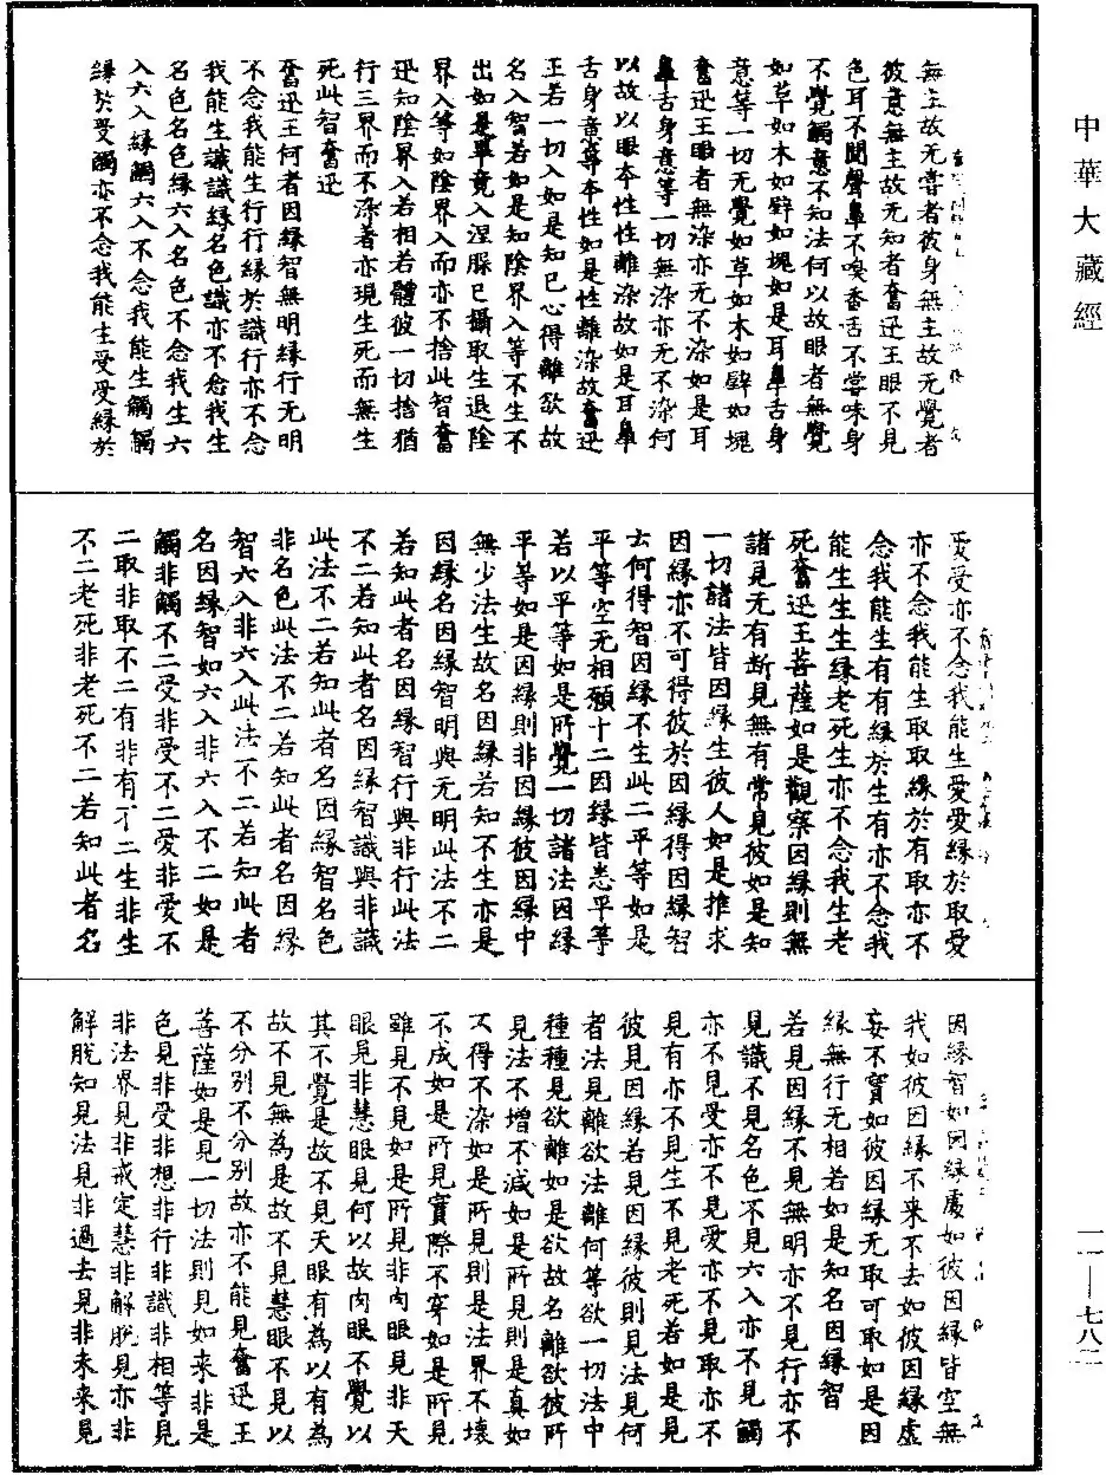 中華大藏經
無主故无嘗者彼身無主故无覺者
彼意無主故无知者奮迅王眼不見
色耳不聞聲鼻不嗅香舌不嘗味身
不覺觸意不知法何以故眼者無覺
如草如木如壁如塊如是耳鼻舌身
意等一切无覺如草如木如壁如塊
奮迅王眼者無染亦无不染如是耳
鼻舌身意等一切無染亦无不染何
以故以眼本性性離染故如是耳鼻
舌身意等本性如是性離染故奮迅
王若一切入如是知已心得離欲故
名入智若如是知陰界入等不生不
出如是畢竟入涅槃已攝取生退陰
界入等如陰界入而亦不捨此智奮
迅知陰界入若相若體彼一切捨猶
行三界而不染著亦現生死而無生
死此智奮迅
奮迅王何者因縁智無明縁行无明
不念我能生行行縁於識行亦不念
我能生識識縁名色識亦不念我生
名色名色縁六入名色不念我生六
入六入縁觸六入不念我能生觸觸
縁於受觸亦不念我能生受受縁於
愛受亦不念我能生愛愛縁於取愛
亦不念我能生取取縁於有取亦不
念我能生有有縁於生有亦不念我
能生生生縁老死生亦不念我生老
死奮迅王菩薩如是觀察因縁則無
諸見无有断見無有常見彼如是知
一切諸法皆因縁生彼人如是推求
因縁亦不可得彼於因縁得因縁智
云何得智因縁不生此二平等如是
平等空无相願十二因縁皆悉平等
若以平等如是所覺一切諸法因縁
平等如是因縁則非因縁彼因縁中
無少法生故名因縁若知不生亦是
因縁名因縁智明與无明此法不二
若知此者名因縁智行與非行此法
不二若知此者名因縁智識與非識
此法不二若知此者名因縁智名色
非名色此法不二若知此者名因縁
智六入非六入此法不二若知此者
名因縁智如六入非六入不二如是
觸非觸不二受非受不二愛非愛不
二取非取不二有非有不二生非生
不二老死非老死不二若知此者名
因縁智如因縁處如彼因縁皆空無
我如彼因縁不来不去如彼因縁虛
妄不實如彼因縁无取可取如是因
縁無行无相若如是知名因縁智
若見因縁不見無明亦不見行亦不
見識不見名色不見六入亦不見觸
亦不見受亦不見愛亦不見取亦不
見有亦不見生不見老死若如是見
彼見因縁若見因縁彼則見法見何
者法見離欲法離何等欲一切法中
種種見欲離如是欲故名離欲彼所
見法不增不減如是所見則是真如
不得不染如是所見則是法界不壞
不成如是所見實際不穿如是所見
雖見不見如是所見非肉眼見非天
眼見非慧眼見何以故肉眼不覺以
其不覺是故不見天眼有為以有為
故不見無為是故不見慧眼不見以
不分别不分别故亦不能見奮迅王
菩薩如是見一切法則見如来非是
色見非受非想非行非識非相等見
非法界見非戒定慧非解脱見亦非
解脱知見法見非過去見非未来見
一一—七八二